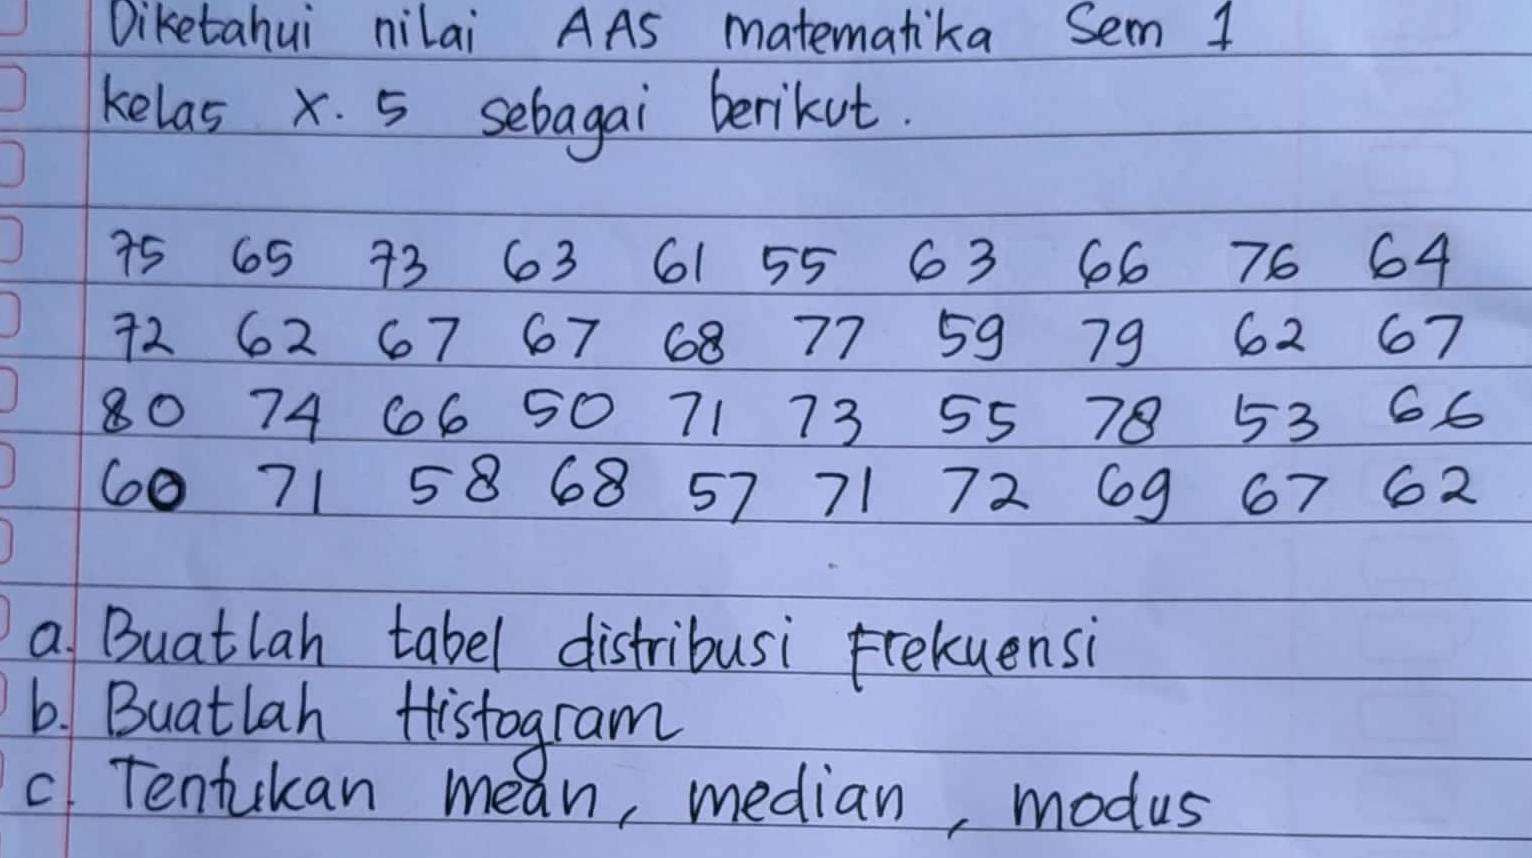 Diketahui nilai AAS matematika Sem 1
kelas X. 5 sebagai berikut.
75 65 73 63 61 55 63 66 76 64
72 62 67 67 68 77 59 79 62 67
80 74 66 50 71 73 55 78 53 66
60 71 58 68 57 71 72 69 67 62
a. Buatlah tabel distribusi Frekuensi
b. Buatlah Histogram
c. Tentukan mean, median, modus